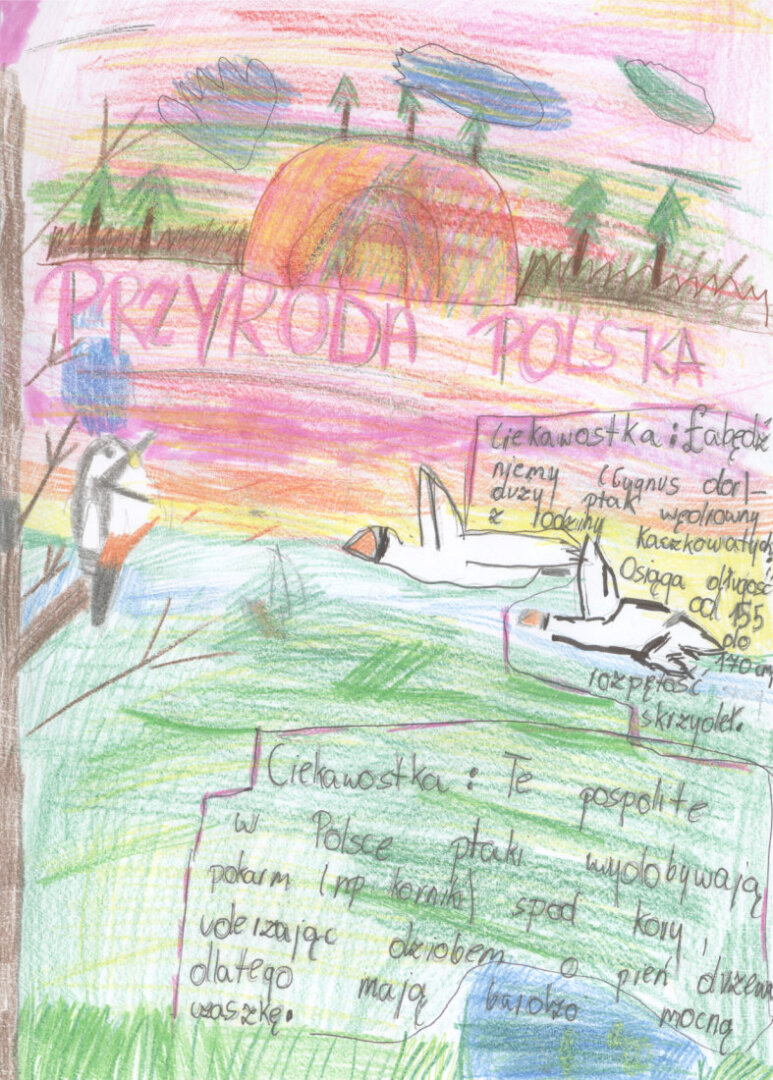 PRZYRODA POLSKA
Ciekawostka: Łabędź
niemy (Cygnus olor)-
duży ptak wędrowny
z rodziny kaczkowatych.
Osiąga długość
od 155
do
170 cm
rozpętość
skrzydeł.
Ciekawostka: Te pospolite
w Polsce ptaki wydobywają
pokarm (np kornik) spod kory,
uderzając dziobem o pień drzewa
dlatego mają bardzo mocną
czaszkę.